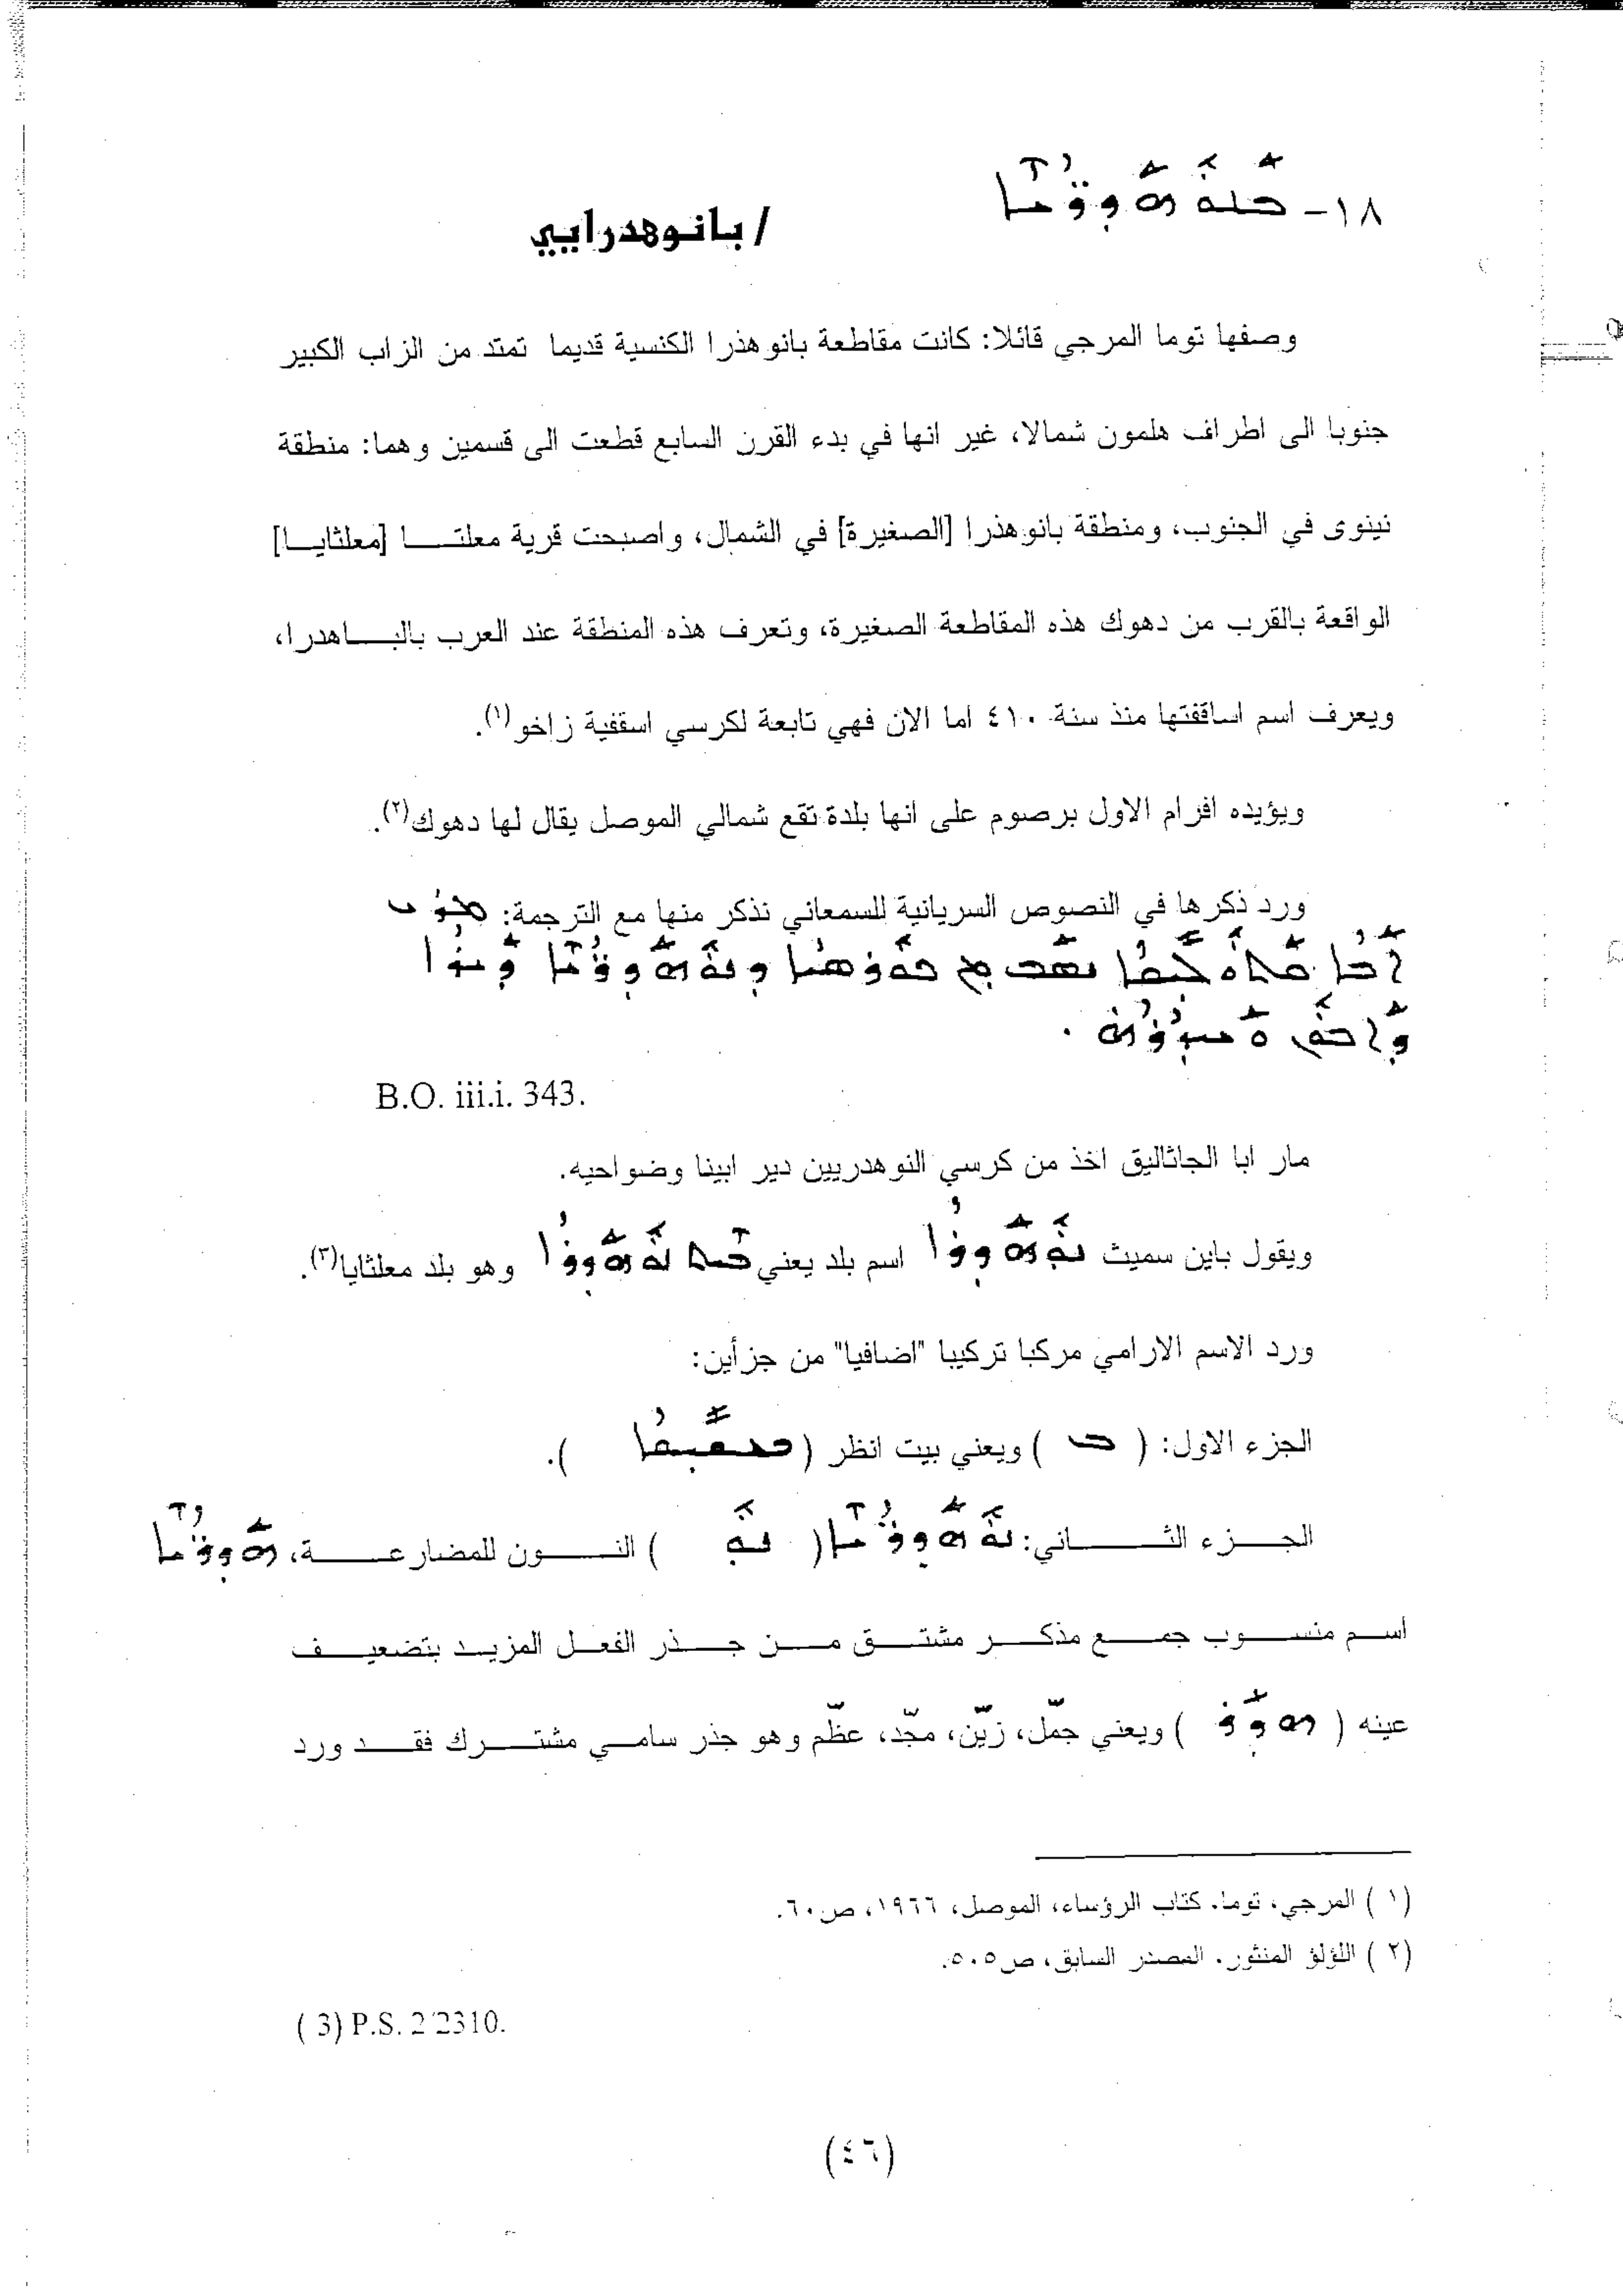 ١٨- ܒܢܘܗܕܪ̈ܝܐ
/ بانوهدرايي
وصفها توما المرجي قائلا: كانت مقاطعة بانوهذرا الكنسية قديما تمتد من الزاب الكبير
جنوبا الى اطراف هلمون شمالا، غير انها في بدء القرن السابع قطعت الى قسمين وهما: منطقة
نينوى في الجنوب، ومنطقة بانوهذرا [الصغيرة] في الشمال، واصبحت قرية معلتا [معلثايا]
الواقعة بالقرب من دهوك هذه المقاطعة الصغيرة، وتعرف هذه المنطقة عند العرب بالباهدرا،
ويعرف اسم اساقفتها منذ سنة ٤١٠ اما الان فهي تابعة لكرسي اسقفية زاخو(١).
ويؤيده افرام الاول برصوم على انها بلدة تقع شمالي الموصل يقال لها دهوك(٢).
ورد ذكرها في النصوص السريانية للسمعاني نذكر منها مع الترجمة: ܡܪܝ
ܐܒܐ ܩܬܘܠܝܩܐ ܢܣܒ ܡܢ ܟܘܪܣܝܐ ܕܢܘܗܕܪ̈ܝܐ ܕܝܪܐ
B.O. iii.i. 343.
مار ابا الجاثاليق اخذ من كرسي النوهدريين دير ابينا وضواحيه.
ويقول باين سميث ܢܘܗܕܪܐ اسم بلد يعني ܒܝܬ ܢܘܗܕܪܐ وهو بلد معلثايا(٣).
ورد الاسم الارامي مركبا تركيبا "اضافيا" من جزأين:
الجزء الاول: ( ܒ ) ويعني بيت انظر ( ).
الجزء الثاني: ܢܘܗܕܪ̈ܝܐ ( ܢܘ ) النون للمضارعة، ܗܕܪ̈ܝܐ
اسم منسوب جمع مذكر مشتق من جذر الفعل المزيد بتضعيف
عينه ( ܗܕܪ ) ويعني جمّل، زيّن، مجّد، عظّم وهو جذر سامي مشترك فقد ورد
(١) المرجي، توما. كتاب الرؤساء، الموصل، ١٩٦٦، ص٦٠.
(٢) اللؤلؤ المنثور. المصدر السابق، ص٥٠٥.
( 3) P.S. 2 2310.
(٤٦)